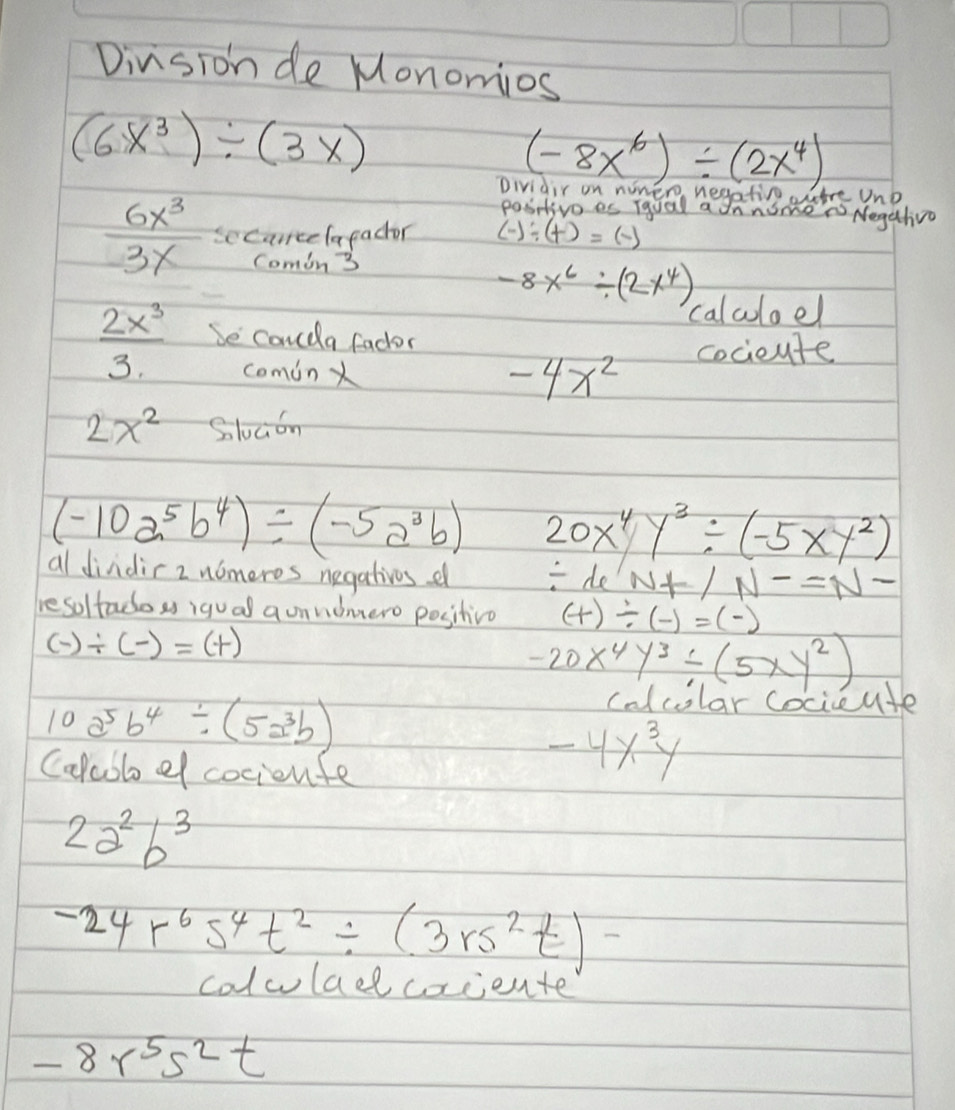 División de Monomios
(6x³) ÷ (3x)
6x³
3x
se cancela factor
común 3
2x³
3.
se cancela factor
común x
2x² Solución
(-8x⁶) ÷ (2x⁴)
Dividir un número negativo entre uno
positivo es igual a un número Negativo
(-) ÷ (+) = (-)
-8x⁶ ÷ (2x⁴)
calculo el
cociente
-4x²
(-10a⁵b⁴) ÷ (-5a³b)
al dividir 2 números negativos el
resultado es igual a un número positivo
(-) ÷ (-) = (+)
10a⁵b⁴ ÷ (5a³b)
Calculo el cociente
2a²b³
20x⁴y³ ÷ (-5xy²)
÷ de N+ / N- = N-
(+) ÷ (-) = (-)
-20x⁴y³ ÷ (5xy²)
calcular cociente
-4x³y
-24r⁶s⁴t² ÷ (3rs²t) -
calcula el cociente
-8r⁵s²t